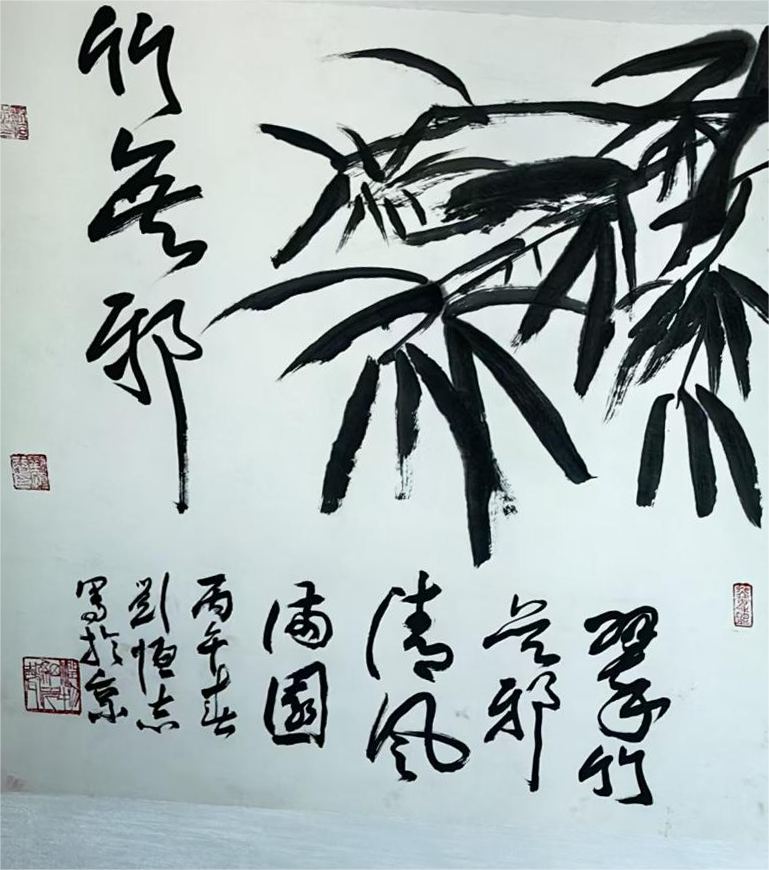 竹無邪
翠竹
無邪
清风
满園
丙午春
刘恒志
写於京